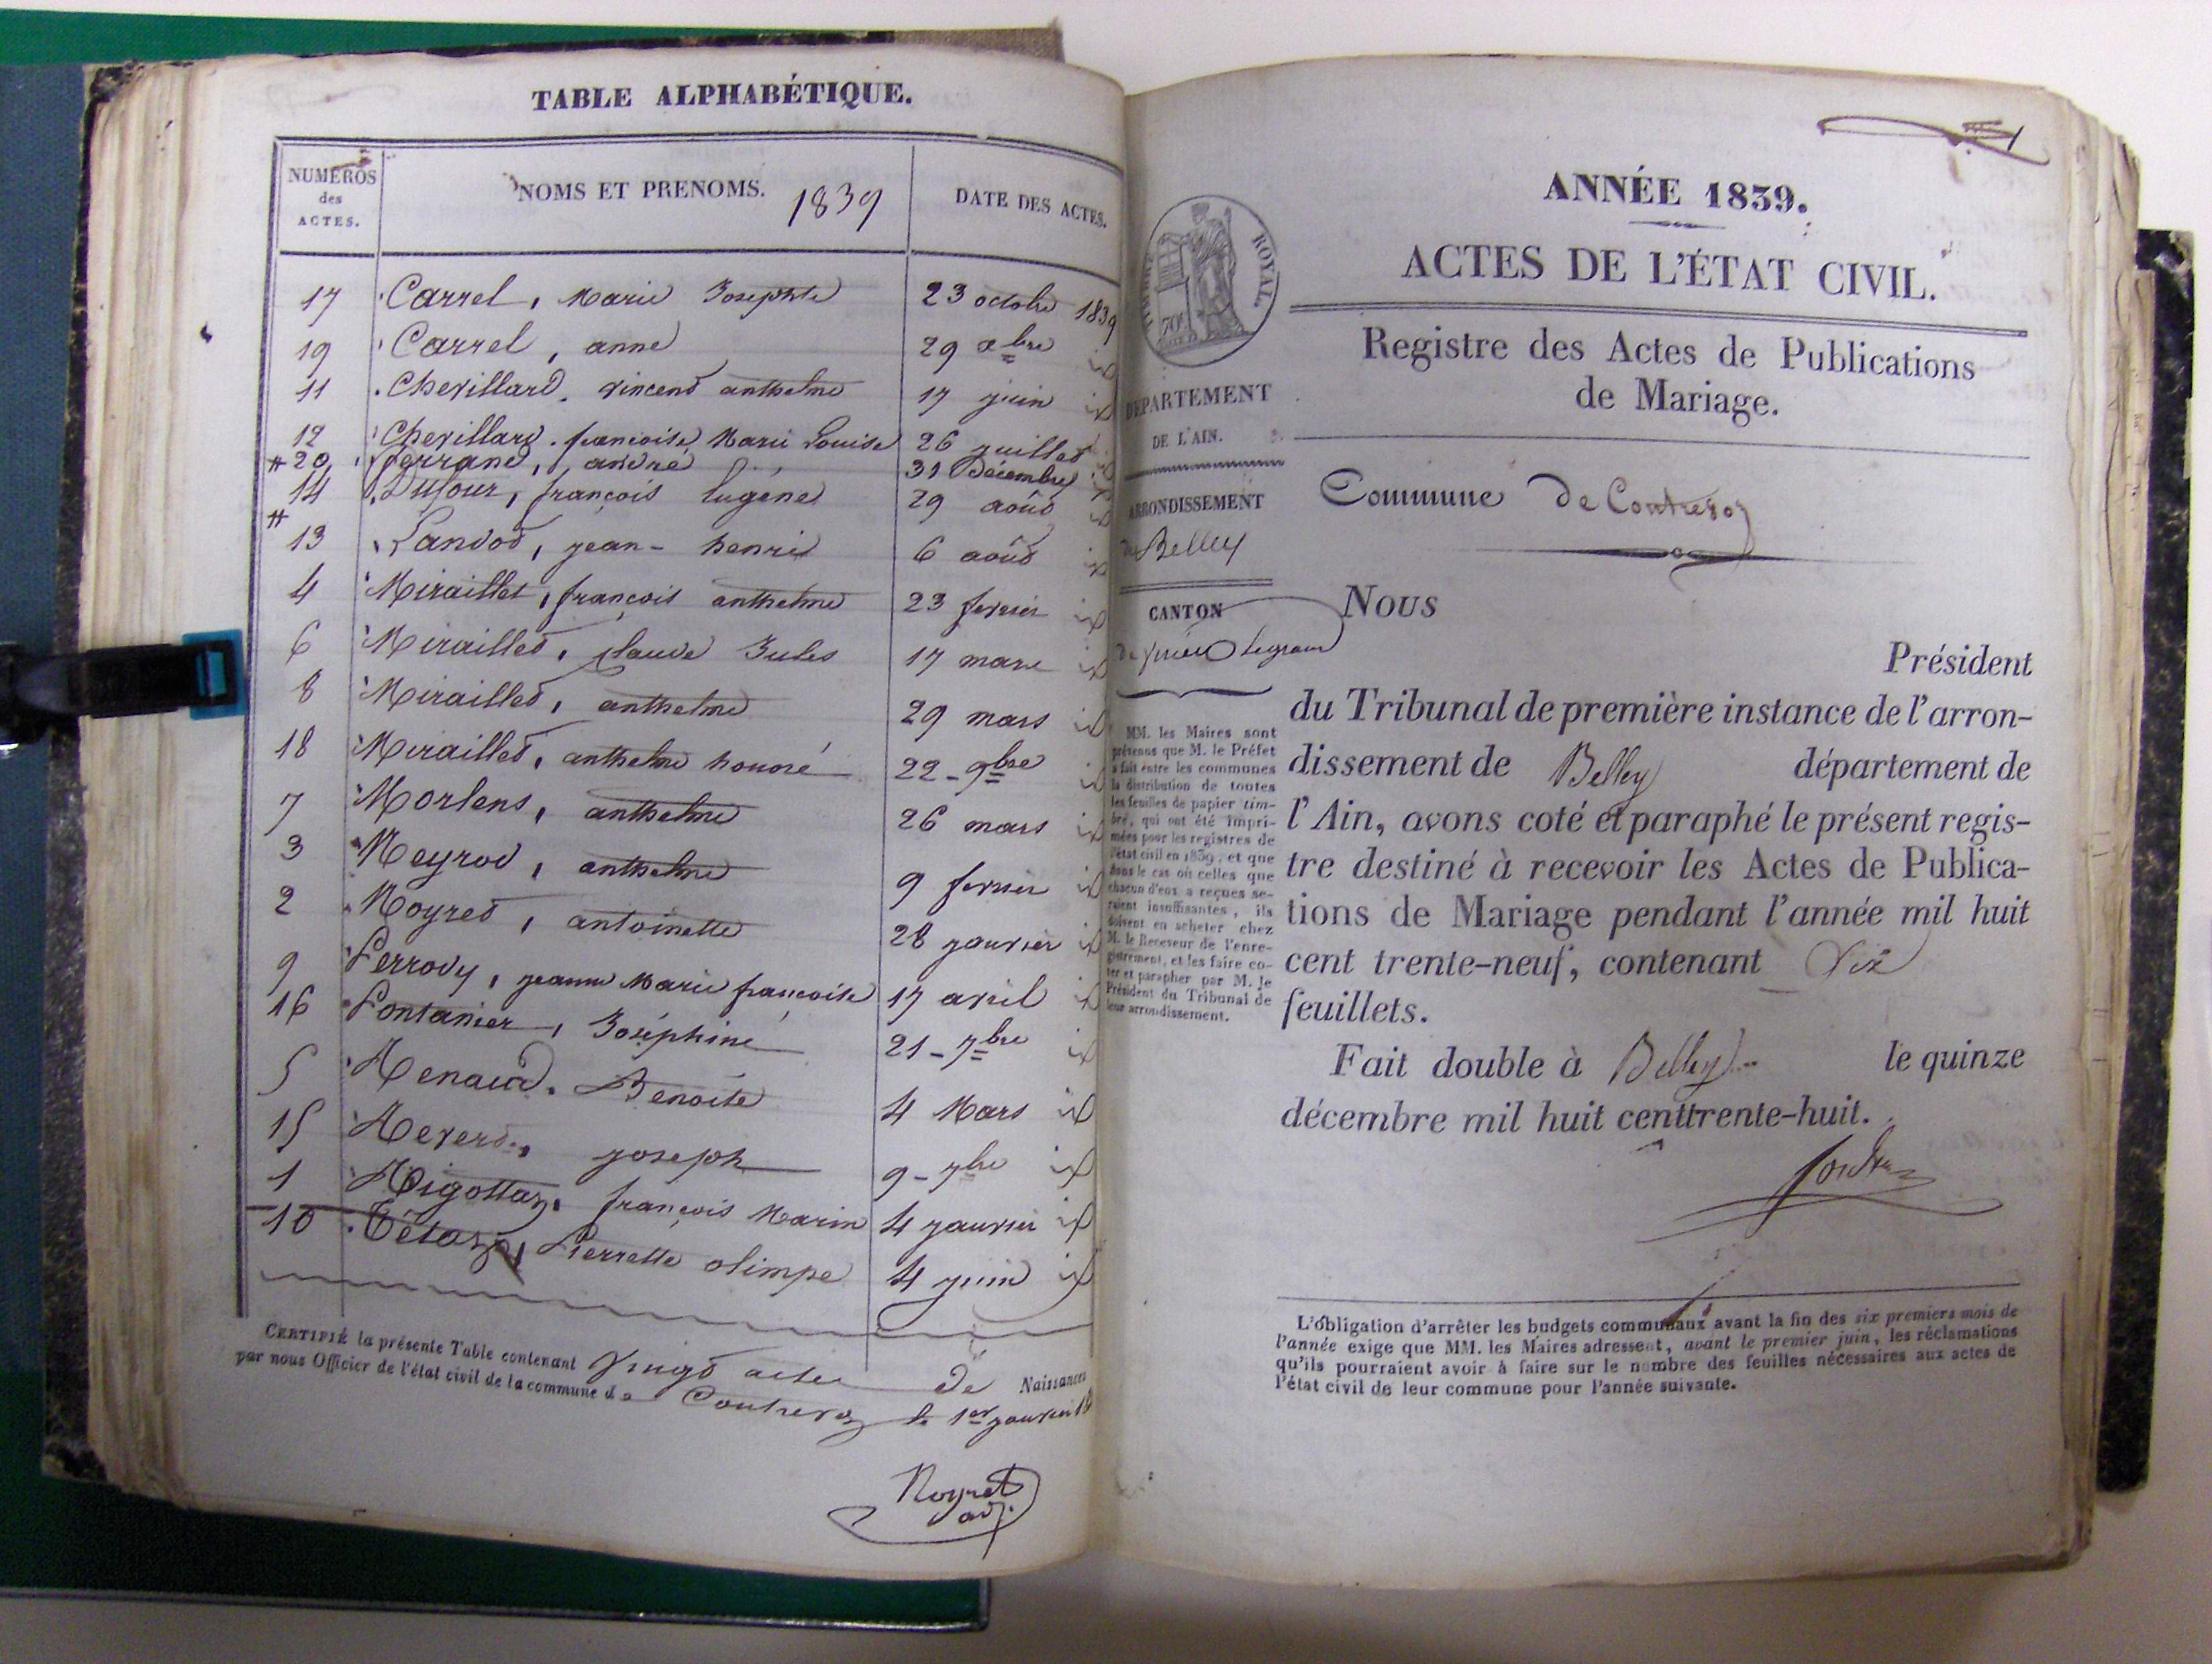 TABLE ALPHABÉTIQUE.
NUMÉROS
des
ACTES.
NOMS ET PRENOMS. 1839
DATE DES ACTES.
17 Carrel, Marie Josephte 23 octobre 1839
19 Carrel, anne 29 xbre id
11 Chevillard, vincend anthelme 17 juin id
12 Chevillard, francoise Marie Louise 26 juillet id
# 20 ferrand, andré 31 Décembre id
14 Dufour, françois Eugène 29 aoûd id
# 13 Landod, jean-henrid 6 aoûd id
4 Miraillet, françois anthelme 23 fevrier id
6 Mirailled, claude Jules 17 mars id
8 Mirailled, anthelme 29 mars id
18 Mirailled, anthelme honoré 22-9bre id
7 Morlens, anthelme 26 mars id
3 Neyrod, anthelme 9 fevrier id
2 Noyred, antoinette 28 janvier id
9 Perrody, jeanne Marie françoise 17 avril id
16 Pontanier, Joséphine 21-7bre id
5 Renaud, Benoite 4 Mars id
15 Reverd, joseph 9-7bre id
1 Rigottaz, françois Marin 4 janvier id
10 Tétaz, Pierrette olimpe 4 juin id
CERTIFIÉ la présente Table contenant Vingd actes de Naissances
par nous Officier de l'état civil de la commune de Contrevoz le 1er janvier 18
Noyret
adj.
ANNÉE 1839.
ACTES DE L'ÉTAT CIVIL.
Registre des Actes de Publications
de Mariage.
Commune de Contrevoz
TIMBRE ROYAL.
70c
DÉPARTEMENT
DE L'AIN.
ARRONDISSEMENT
de Belley
CANTON
de virieu Legrand
MM. les Maires sont
prévenus que M. le Préfet
a fait entre les communes
la distribution de toutes
les feuilles de papier tim-
bré, qui ont été impri-
mées pour les registres de
l'état civil en 1839, et que
dans le cas où celles que
chacun d'eux a reçues se-
raient insuffisantes, ils
doivent en acheter chez
M. le Receveur de l'enre-
gistrement, et les faire co-
ter et parapher par M. le
Président du Tribunal de
leur arrondissement.
NOUS
Président
du Tribunal de première instance de l'arron-
dissement de Belley département de
l'Ain, avons coté et paraphé le présent regis-
tre destiné à recevoir les Actes de Publica-
tions de Mariage pendant l'année mil huit
cent trente-neuf, contenant Six
feuillets.
Fait double à Belley le quinze
décembre mil huit centtrente-huit.
L'obligation d'arrêter les budgets communaux avant la fin des six premiers mois de
l'année exige que MM. les Maires adressent, avant le premier juin, les réclamations
qu'ils pourraient avoir à faire sur le nombre des feuilles nécessaires aux actes de
l'état civil de leur commune pour l'année suivante.